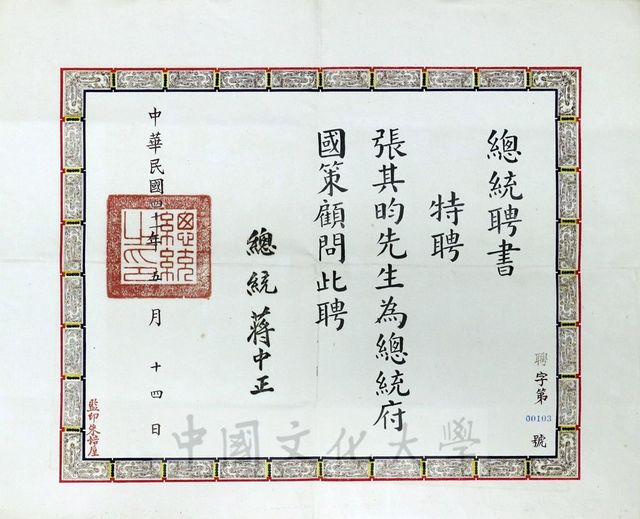 總統聘書
特聘
張其昀先生為總統府
國策顧問此聘
總統 蔣中正
中華民國四十一年 五 月 十四日
總統之印
聘字第
00103
號
監印朱培垕
中國文化大學